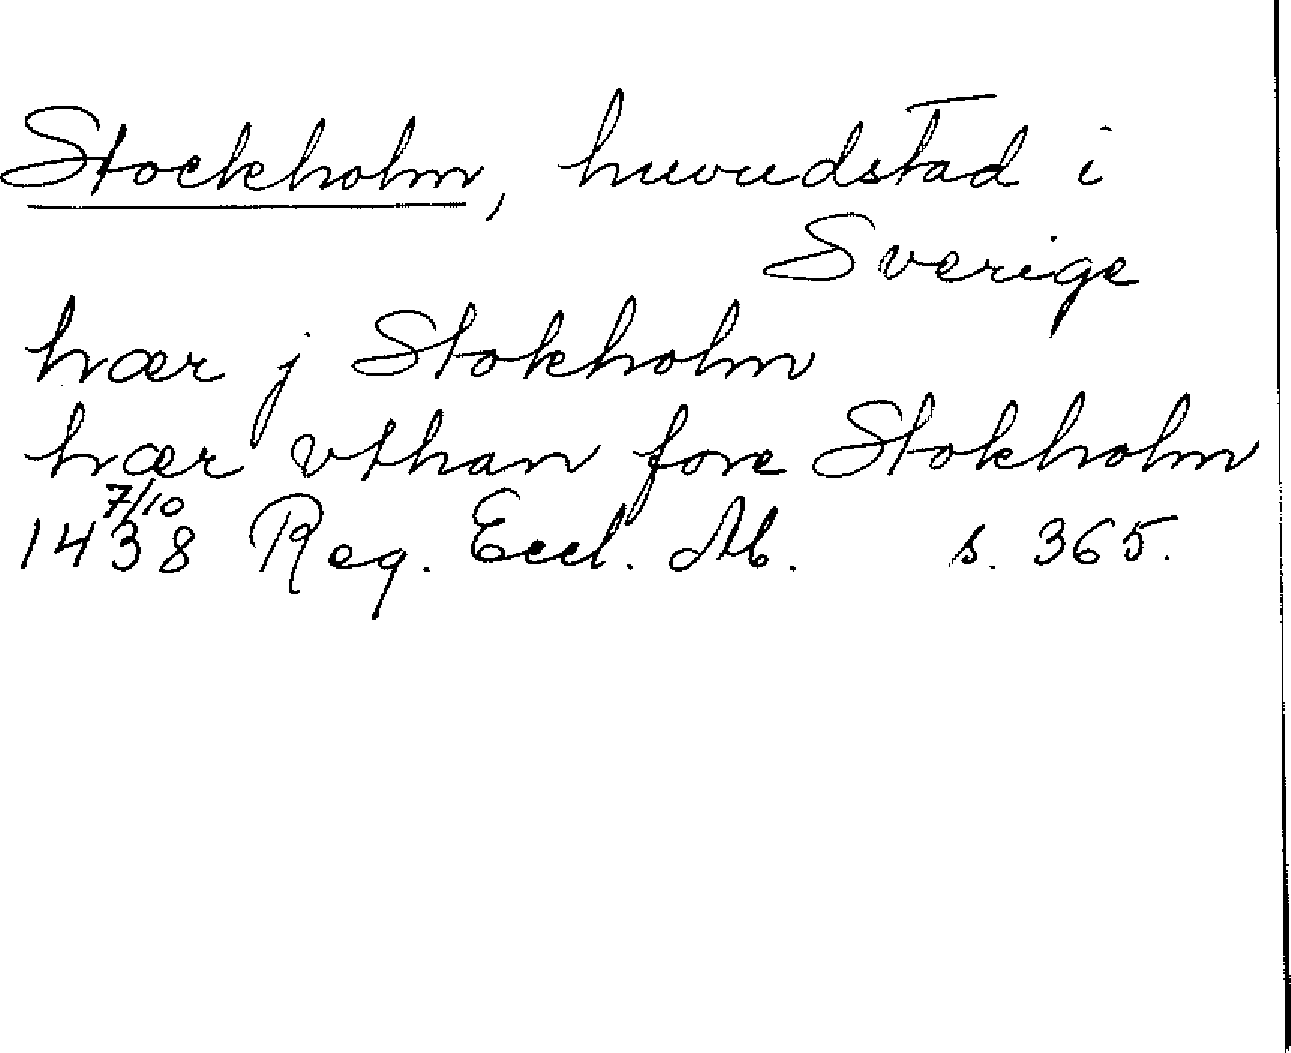 Stockholm, huvudstad i
Sverige
hær j Stokholm
hær vthan fore Stokholm
1438 7/10 Reg. Eccl. Ab. s. 365.